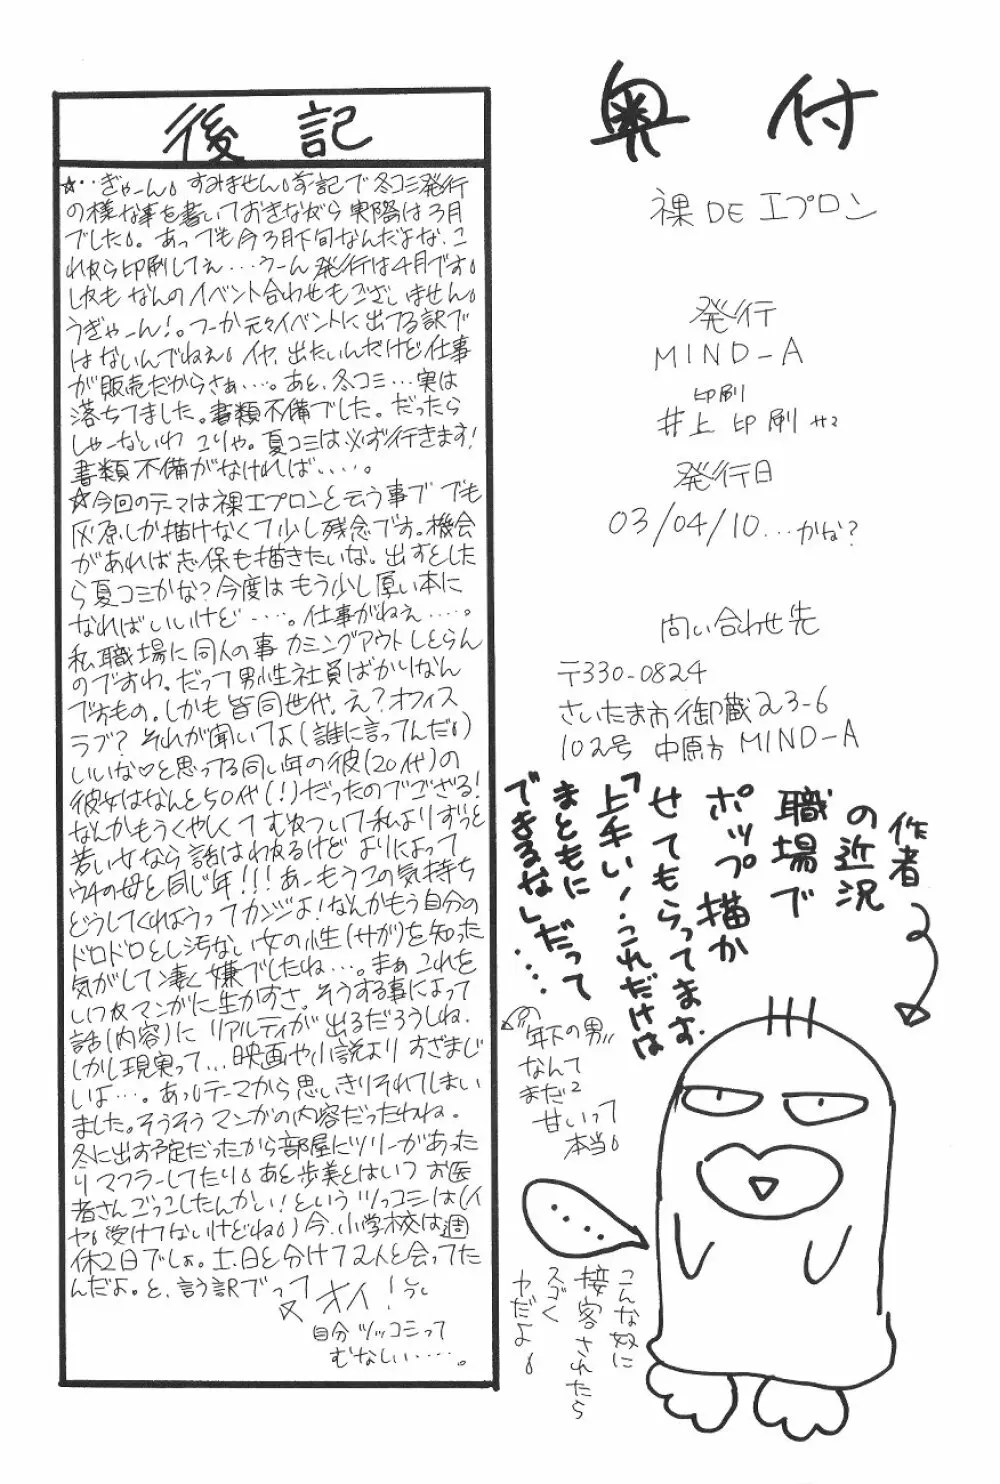 後記
☆‥ぎゃーん。すみません。前記で冬コミ発行
の様な事を書いておきながら実際は3月
でした。あっでも今3月下旬なんだよな、こ
れから印刷してぇ…うーん発行は4月です。
しかも なんのイベント合わせもございません。
うぎゃーん!。つーか元々イベントに出てる訳で
はないんでねぇ。イヤ、出たいんだけど仕事
が販売だからさぁ…。あと、冬コミ…実は
落ちてました。書類不備でした。だったら
しゃーないわ こりゃ。夏コミは必ず行きます!
書類不備がなければ‥‥。
☆今回のテーマは裸エプロンと云う事で でも
灰原しか描けなくて少し残念です。機会
があれば志保も描きたいな。出すとした
ら夏コミかな?今度は もう少し厚い本に
なればいいけど‥‥。仕事がねぇ‥‥。
私職場に同人の事 カミングアウトしとらん
のですわ。だって男性社員ばかりなん
でおもの。しかも皆同世代。え?オフィス
ラブ? それが聞いてよ(誰に言ってんだ。)
いいな♡と思ってる同い年の彼(20代)の
彼女はなんと50代(!)だったのでござる!
なんかもうくやしくて むねついて私よりずっと
若い女なら話はわかるけど よりによって
ウチの母と同じ年!!!あーもうこの気持ち
どうしてくれようってカンジよ!なんかもう自分の
ドロドロとし汚ない女の性(サガ)を知った
気がして凄く嫌でしたね…。まぁこれを
いつかマンガに生かすさ。そうする事によって
話(内容)に リアルティが出るだろうしね。
しかし現実って…映画や小説より すざまじ
いよ…。あっテーマから思いきりそれてしまい
ました。そうそうマンガの内容だったわね。
冬に出す予定だったから部屋にツリーがあった
りマフラーしてたり。あと歩美とはいつ お医
者さんごっこしたんかい!という ツッコミは(イ
ヤ。受けてないけどね。)今、小学校は週
休2日でしょ。土、日と分けて2人と会ってた
んだよ。と、言う訳でって オイ!
自分 ツッコミって
むなしい‥‥。
奥付
裸DEエプロン
発行
MIND-A
印刷
井上印刷サマ
発行日
03/04/10…かな?
問い合わせ先
〒330-0824
さいたま市御蔵23-6
102号 中原方 MIND-A
作者
の近況
職場で
ポップ描か
せてもらってます。
「上手い!」これだけは
まともに
できるなし、だって
‥‥
年下の男
なんて
まだ2
甘いって
本当。
‥‥
こんな奴に
接客されたら
スゴく
ヤだよ。